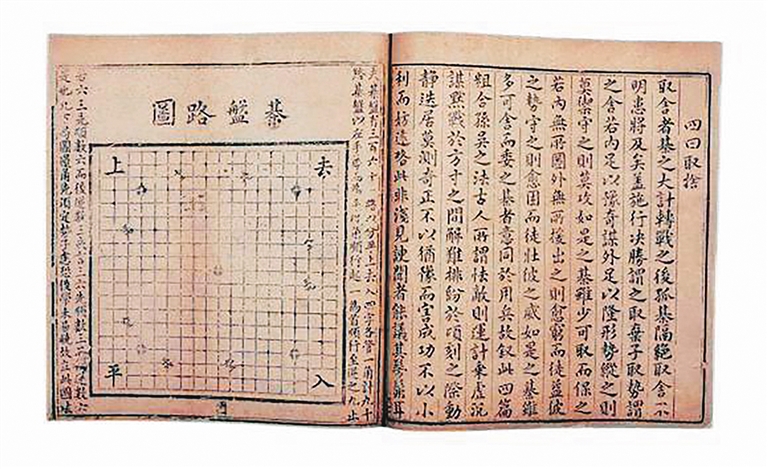 四曰取捨
取舍者棊之大計轉戰之後孤棊隔絕取舍不
明患將及矣蓋施行決勝謂之取棄子取勢謂
之舍若內足以豫奇謀外足以隆形勢縱之則
莫禦守之則莫攻如是之棊雖少可取而保之
若內無所圖外無所援出之則愈窮而徒益彼
之勢守之則愈困而徒壯彼之威如是之棊雖
多可舍而委之棊者意同於用兵故叙此四篇
粗合孫吳之法古人所謂怯敵則運計乘虛沉
謀默戰於方寸之間解難排紛於頃刻之際動
靜迭居莫測奇正不以猶豫而害成功不以小
利而妨遠略此非淺見諛聞者能議其髣髴耳
夫棊盤三百六十路以分平上去入四字各管一角計九十
棊盤路圖
去
上
入
平